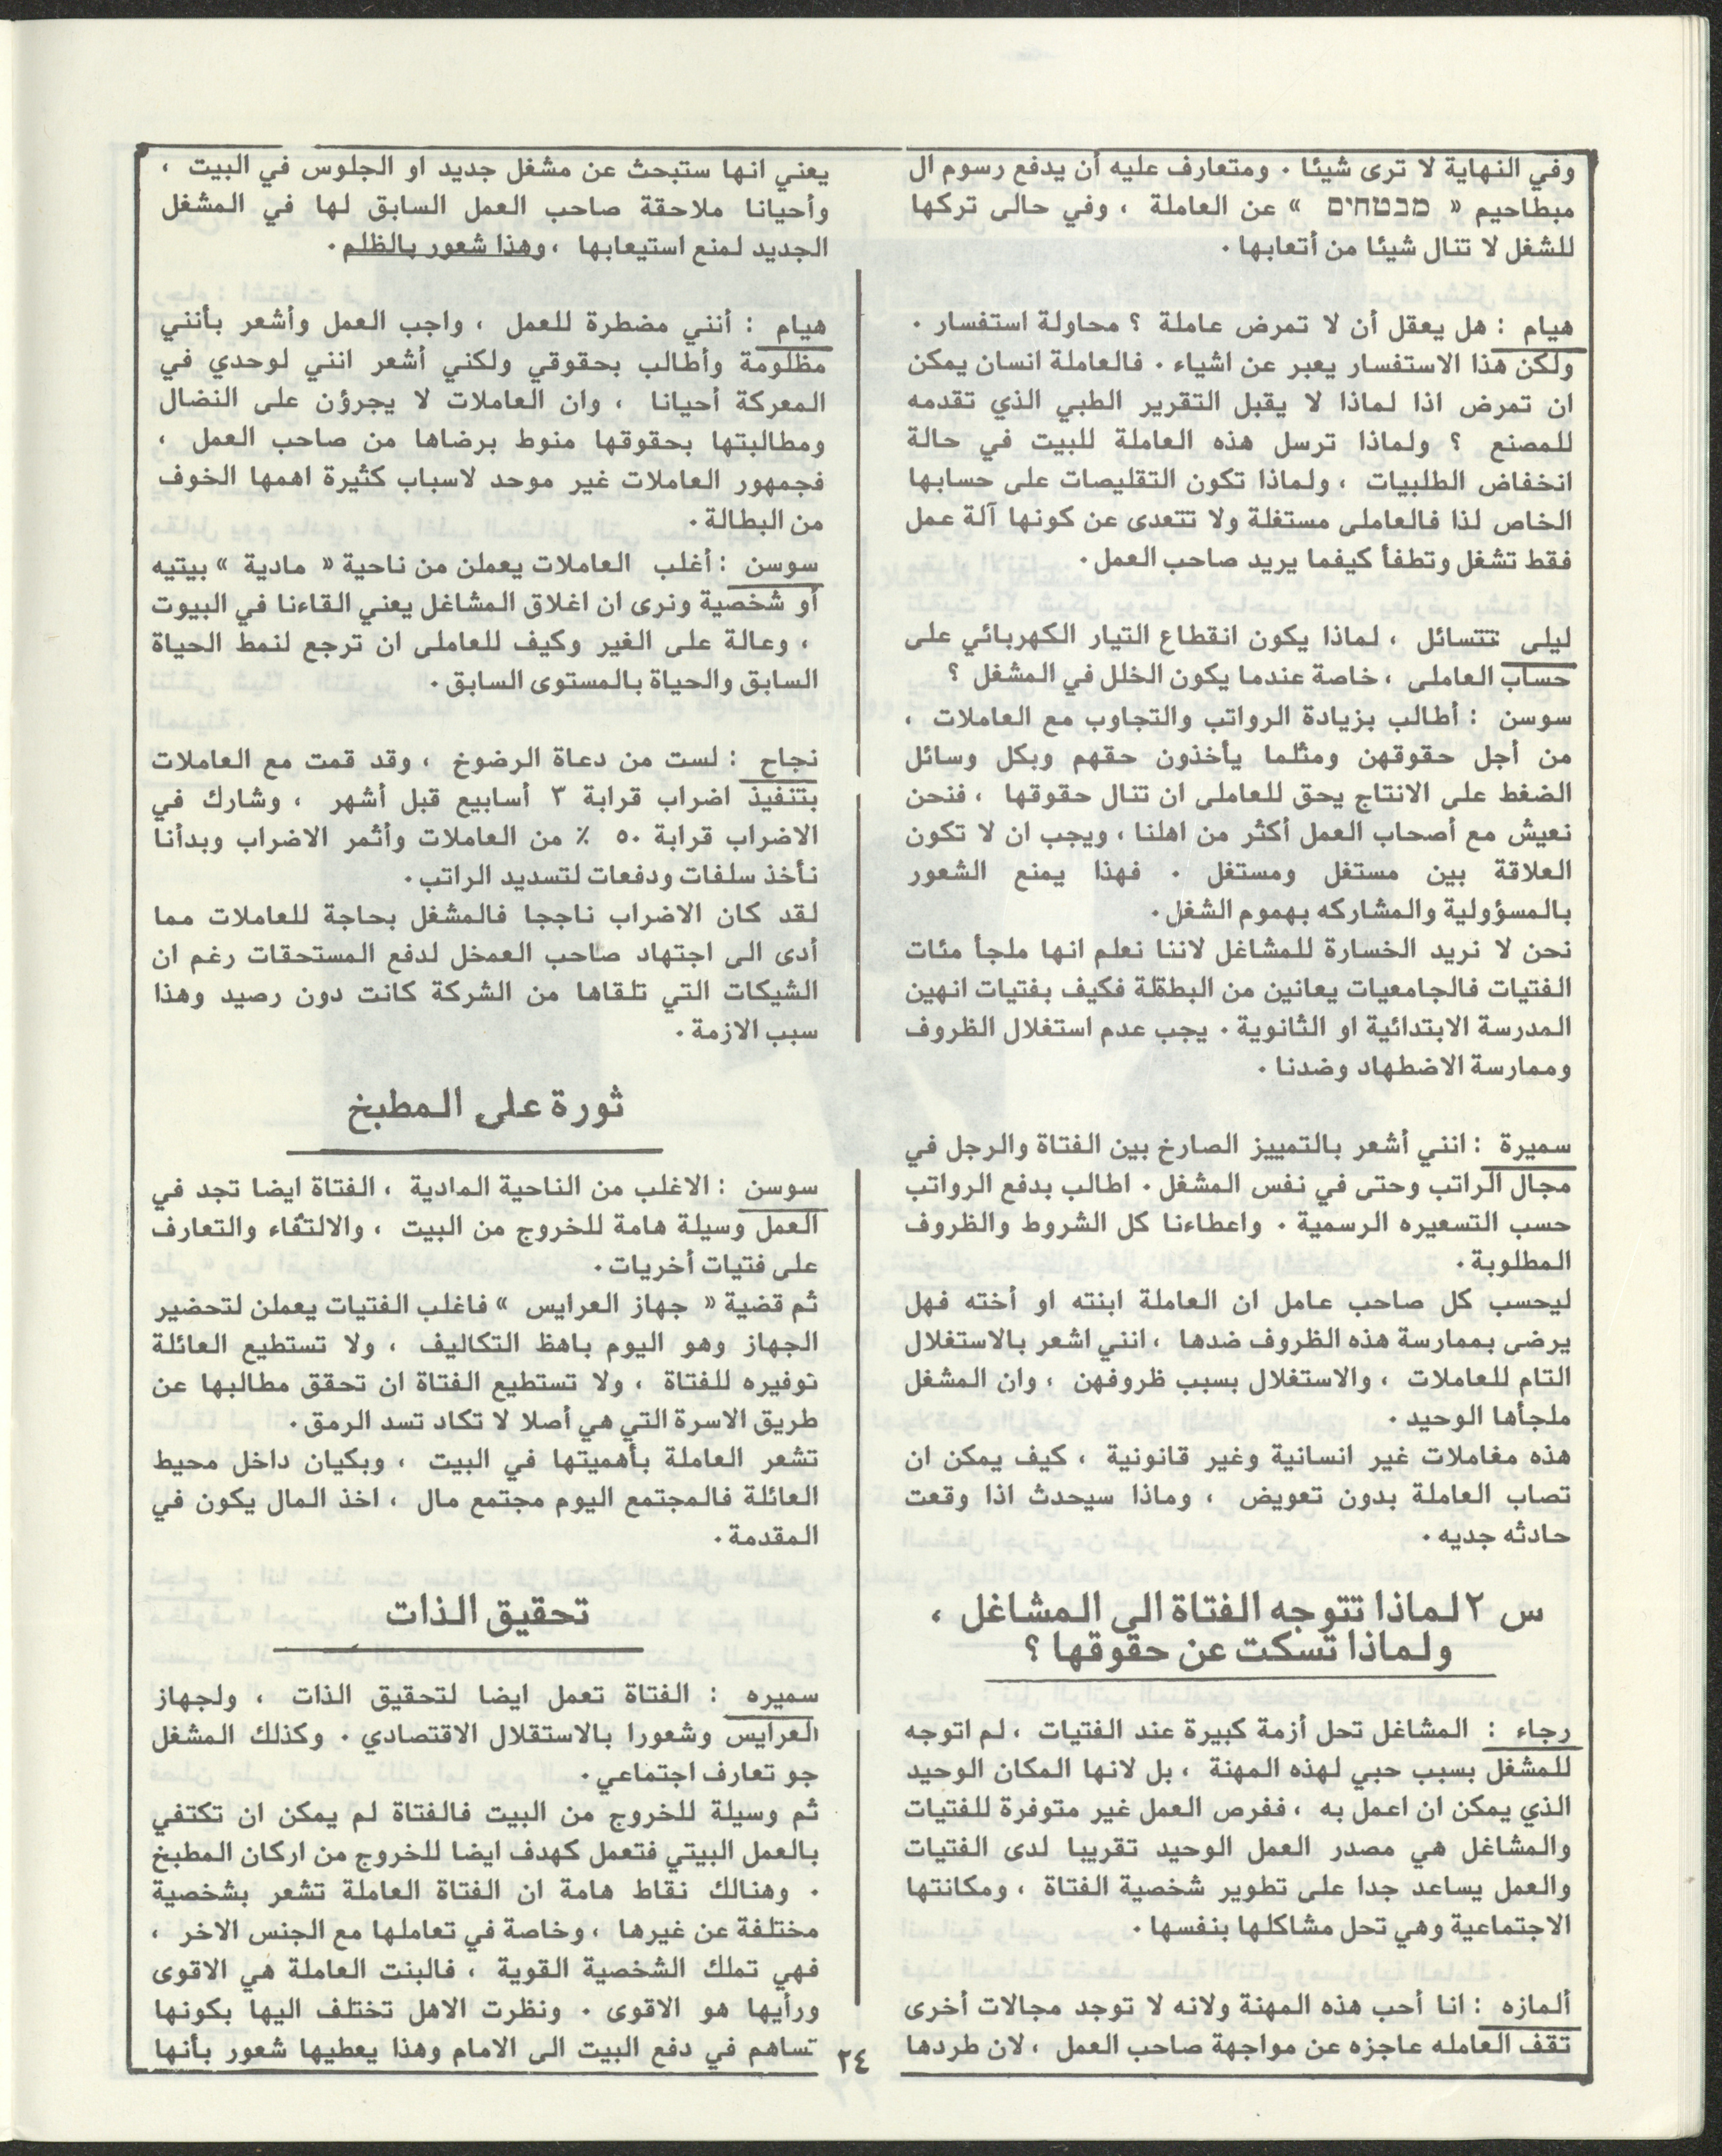 وفي النهاية لا ترى شيئا ٠ ومتعارف عليه أن يدفع رسوم ال
مبطاحيم « מבטחים » عن العاملة ، وفي حالى تركها
للشغل لا تنال شيئا من أتعابها ٠
هيام : هل يعقل أن لا تمرض عاملة ؟ محاولة استفسار ٠
ولكن هذا الاستفسار يعبر عن اشياء ٠ فالعاملة انسان يمكن
ان تمرض اذا لماذا لا يقبل التقرير الطبي الذي تقدمه
للمصنع ؟ ولماذا ترسل هذه العاملة للبيت في حالة
انخفاض الطلبيات ، ولماذا تكون التقليصات على حسابها
الخاص لذا فالعاملى مستغلة ولا تتعدى عن كونها آلة عمل
فقط تشغل وتطفأ كيفما يريد صاحب العمل ٠
ليلى تتسائل ، لماذا يكون انقطاع التيار الكهربائي على
حساب العاملى ، خاصة عندما يكون الخلل في المشغل ؟
سوسن : أطالب بزيادة الرواتب والتجاوب مع العاملات ،
من أجل حقوقهن ومثلما يأخذون حقهم وبكل وسائل
الضغط على الانتاج يحق للعاملى ان تنال حقوقها ، فنحن
نعيش مع أصحاب العمل أكثر من اهلنا ، ويجب ان لا تكون
العلاقة بين مستغل ومستغل ٠ فهذا يمنع الشعور
بالمسؤولية والمشاركه بهموم الشغل ٠
نحن لا نريد الخسارة للمشاغل لاننا نعلم انها ملجأ مئات
الفتيات فالجامعيات يعانين من البطالة فكيف بفتيات انهين
المدرسة الابتدائية او الثانوية ٠ يجب عدم استغلال الظروف
وممارسة الاضطهاد وضدنا ٠
سميرة : انني أشعر بالتمييز الصارخ بين الفتاة والرجل في
مجال الراتب وحتى في نفس المشغل ٠ اطالب بدفع الرواتب
حسب التسعيره الرسمية ٠ واعطاءنا كل الشروط والظروف
المطلوبة ٠
ليحسب كل صاحب عامل ان العاملة ابنته او أخته فهل
يرضى بممارسة هذه الظروف ضدها ، انني اشعر بالاستغلال
التام للعاملات ، والاستغلال بسبب ظروفهن ، وان المشغل
ملجأها الوحيد ٠
هذه مغاملات غير انسانية وغير قانونية ، كيف يمكن ان
تصاب العاملة بدون تعويض ، وماذا سيحدث اذا وقعت
حادثه جديه ٠
س ٢ لماذا تتوجه الفتاة الى المشاغل ،
ولماذا تسكت عن حقوقها ؟
رجاء : المشاغل تحل أزمة كبيرة عند الفتيات ، لم اتوجه
للمشغل بسبب حبي لهذه المهنة ، بل لانها المكان الوحيد
الذي يمكن ان اعمل به ، ففرص العمل غير متوفرة للفتيات
والمشاغل هي مصدر العمل الوحيد تقريبا لدى الفتيات
والعمل يساعد جدا على تطوير شخصية الفتاة ، ومكانتها
الاجتماعية وهي تحل مشاكلها بنفسها ٠
ألمازه : انا أحب هذه المهنة ولانه لا توجد مجالات أخرى
تقف العامله عاجزه عن مواجهة صاحب العمل ، لان طردها
يعني انها ستبحث عن مشغل جديد او الجلوس في البيت ،
وأحيانا ملاحقة صاحب العمل السابق لها في المشغل
الجديد لمنع استيعابها ، وهذا شعور بالظلم ٠
هيام : أنني مضطرة للعمل ، واجب العمل وأشعر بأنني
مظلومة وأطالب بحقوقي ولكني أشعر انني لوحدي في
المعركة أحيانا ، وان العاملات لا يجرؤن على النضال
ومطالبتها بحقوقها منوط برضاها من صاحب العمل ،
فجمهور العاملات غير موحد لاسباب كثيرة اهمها الخوف
من البطالة ٠
سوسن : أغلب العاملات يعملن من ناحية « مادية » بيتيه
أو شخصية ونرى ان اغلاق المشاغل يعني القاءنا في البيوت
، وعالة على الغير وكيف للعاملى ان ترجع لنمط الحياة
السابق والحياة بالمستوى السابق ٠
نجاح : لست من دعاة الرضوخ ، وقد قمت مع العاملات
بتنفيذ اضراب قرابة ٣ أسابيع قبل أشهر ، وشارك في
الاضراب قرابة ٥٠ ٪ من العاملات وأثمر الاضراب وبدأنا
نأخذ سلفات ودفعات لتسديد الراتب ٠
لقد كان الاضراب ناججا فالمشغل بحاجة للعاملات مما
أدى الى اجتهاد صاحب العمخل لدفع المستحقات رغم ان
الشيكات التي تلقاها من الشركة كانت دون رصيد وهذا
سبب الازمة ٠
ثورة على المطبخ
سوسن : الاغلب من الناحية المادية ، الفتاة ايضا تجد في
العمل وسيلة هامة للخروج من البيت ، والالتقاء والتعارف
على فتيات أخريات ٠
ثم قضية « جهاز العرايس » فاغلب الفتيات يعملن لتحضير
الجهاز وهو اليوم باهظ التكاليف ، ولا تستطيع العائلة
توفيره للفتاة ، ولا تستطيع الفتاة ان تحقق مطالبها عن
طريق الاسرة التي هي أصلا لا تكاد تسد الرمق ٠
تشعر العاملة بأهميتها في البيت ، وبكيان داخل محيط
العائلة فالمجتمع اليوم مجتمع مال ، اخذ المال يكون في
المقدمة ٠
تحقيق الذات
سميره : الفتاة تعمل ايضا لتحقيق الذات ، ولجهاز
العرايس وشعورا بالاستقلال الاقتصادي ٠ وكذلك المشغل
جو تعارف اجتماعي ٠
ثم وسيلة للخروج من البيت فالفتاة لم يمكن ان تكتفي
بالعمل البيتي فتعمل كهدف ايضا للخروج من اركان المطبخ
٠ وهنالك نقاط هامة ان الفتاة العاملة تشعر بشخصية
مختلفة عن غيرها ، وخاصة في تعاملها مع الجنس الاخر ،
فهي تملك الشخصية القوية ، فالبنت العاملة هي الاقوى
ورأيها هو الاقوى ٠ ونظرت الاهل تختلف اليها بكونها
تساهم في دفع البيت الى الامام وهذا يعطيها شعور بأنها
٢٤